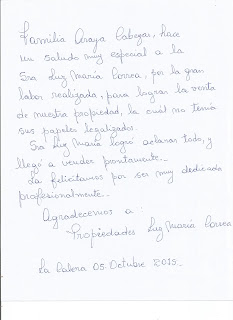 Familia Araya Cabezas, hace
un saludo muy especial a la
Sra Luz María Correa, por la gran
labor realizada, para lograr la venta
de nuestra propiedad, la cuál no tenía
sus papeles legalizados.
Sra Luz María logró aclarar todo, y
llegó a vender prontamente.-
La felicitamos por ser muy dedicada
profesionalmente.-
Agradecemos a:
Propiedades Luz María Correa
La Calera 05. Octubre 2015.-